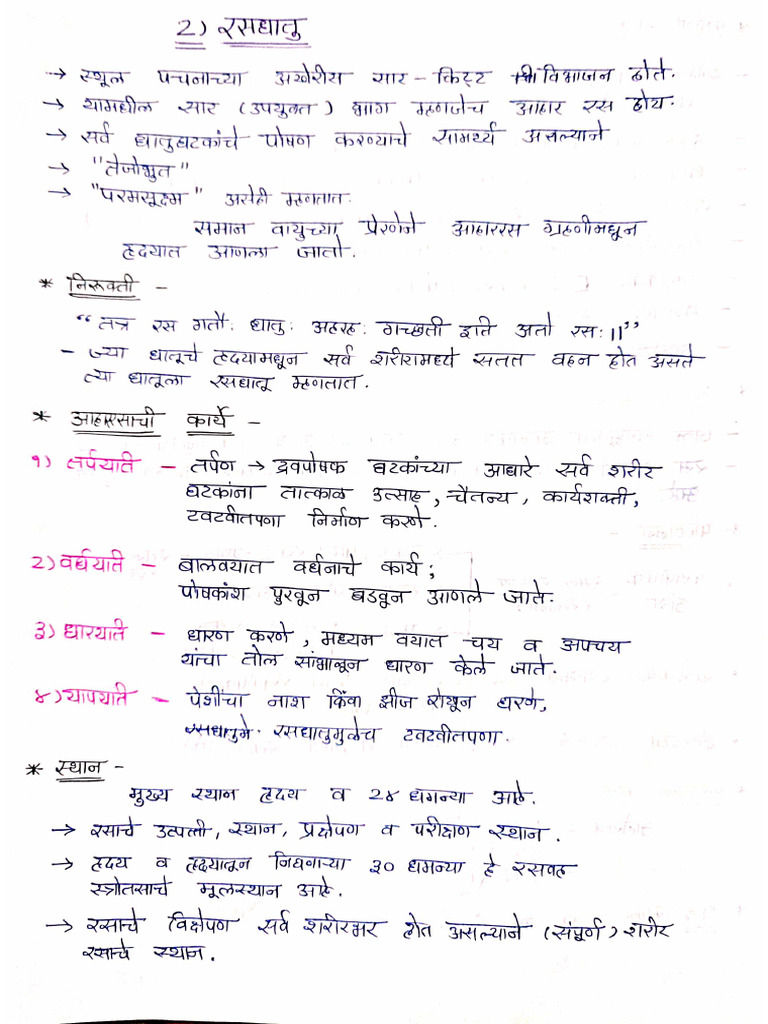 2) रसधातु
→ स्थूल पचनाच्या अखेरीस सार - किट्ट विभाजन होते.
→ यामधील सार (उपयुक्त) भाग म्हणजेच आहार रस होय.
→ सर्व धातुघटकांचे पोषण करण्याचे सामर्थ्य असल्याने
→ "तेजोभुत"
→ "परमसूक्ष्म" असेही म्हणतात.
समान वायुच्या प्रेरणेने आहाररस ग्रहणीमधून
हृदयात आणला जातो.
* निरूक्ती -
"तत्र रस गतौः धातुः अहरहः गच्छती इति अतो रसः॥"
- ज्या धातूचे हृदयामधून सर्व शरीरामध्ये सतत वहन होत असते
त्या धातूला रसधातू म्हणतात.
* आहारसाची कार्ये -
१) तर्पयाति - तर्पण → द्रवपोषक घटकांच्या आधारे सर्व शरीर
घटकांना तात्काळ उत्साह, चैतन्य, कार्यशक्ती,
टवटवीतपणा निर्माण करणे.
2) वर्धयाति - बालवयात वर्धनाचे कार्य;
पोषकांश पुरवून बडवून आणले जाते.
३) धारयाति - धारण करणे, मध्यन वयात चय व अपचय
यांचा तोल सांभाळून धारण केले जाते.
४) यापयाति - पेशींचा नाश किंवा झीज रोखून धरणे,
रसधातुमुळेच टवटवीतपणा.
* स्थान -
मुख्य स्थान हृदय व २४ धमन्या आहे.
→ रसाचे उत्पत्ती, स्थान, प्रक्षेपण व परीक्षण स्थान.
→ हृदय व हृदयातून निघणाऱ्या १० धमन्या हे रसवह
स्त्रोतसाचे मूलस्थान आहे.
→ रसाचे विक्षेपण सर्व शरीरभर होत असल्याने (संपूर्ण) शरीर
रसाचे स्थान.